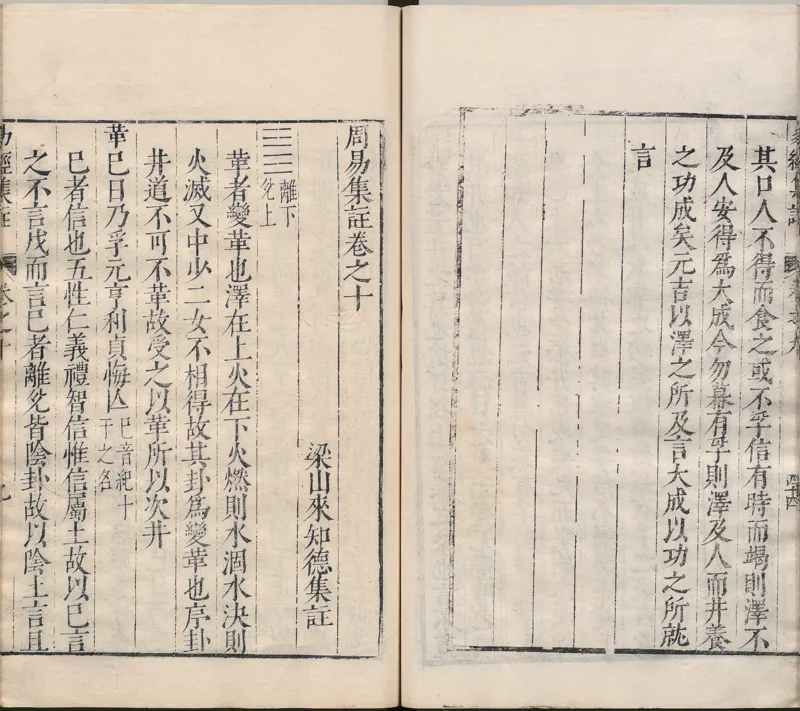 其口人不得而食之或不孚信有時而竭則澤不
及人安得爲大成今勿幕有孚則澤及人而井養
之功成矣元吉以澤之所及言大成以功之所就
言
周易集註卷之十
梁山來知德集註
離下
兌上
革者變革也澤在上火在下火燃則水涸水決則
火滅又中少二女不相得故其卦爲變革也序卦
井道不可不革故受之以革所以次井
革巳日乃孚元亨利貞悔亾巳音紀十
干之名
巳者信也五性仁義禮智信惟信屬土故以巳言
之不言戊而言巳者離兌皆陰卦故以陰土言且
易經集註 卷之十